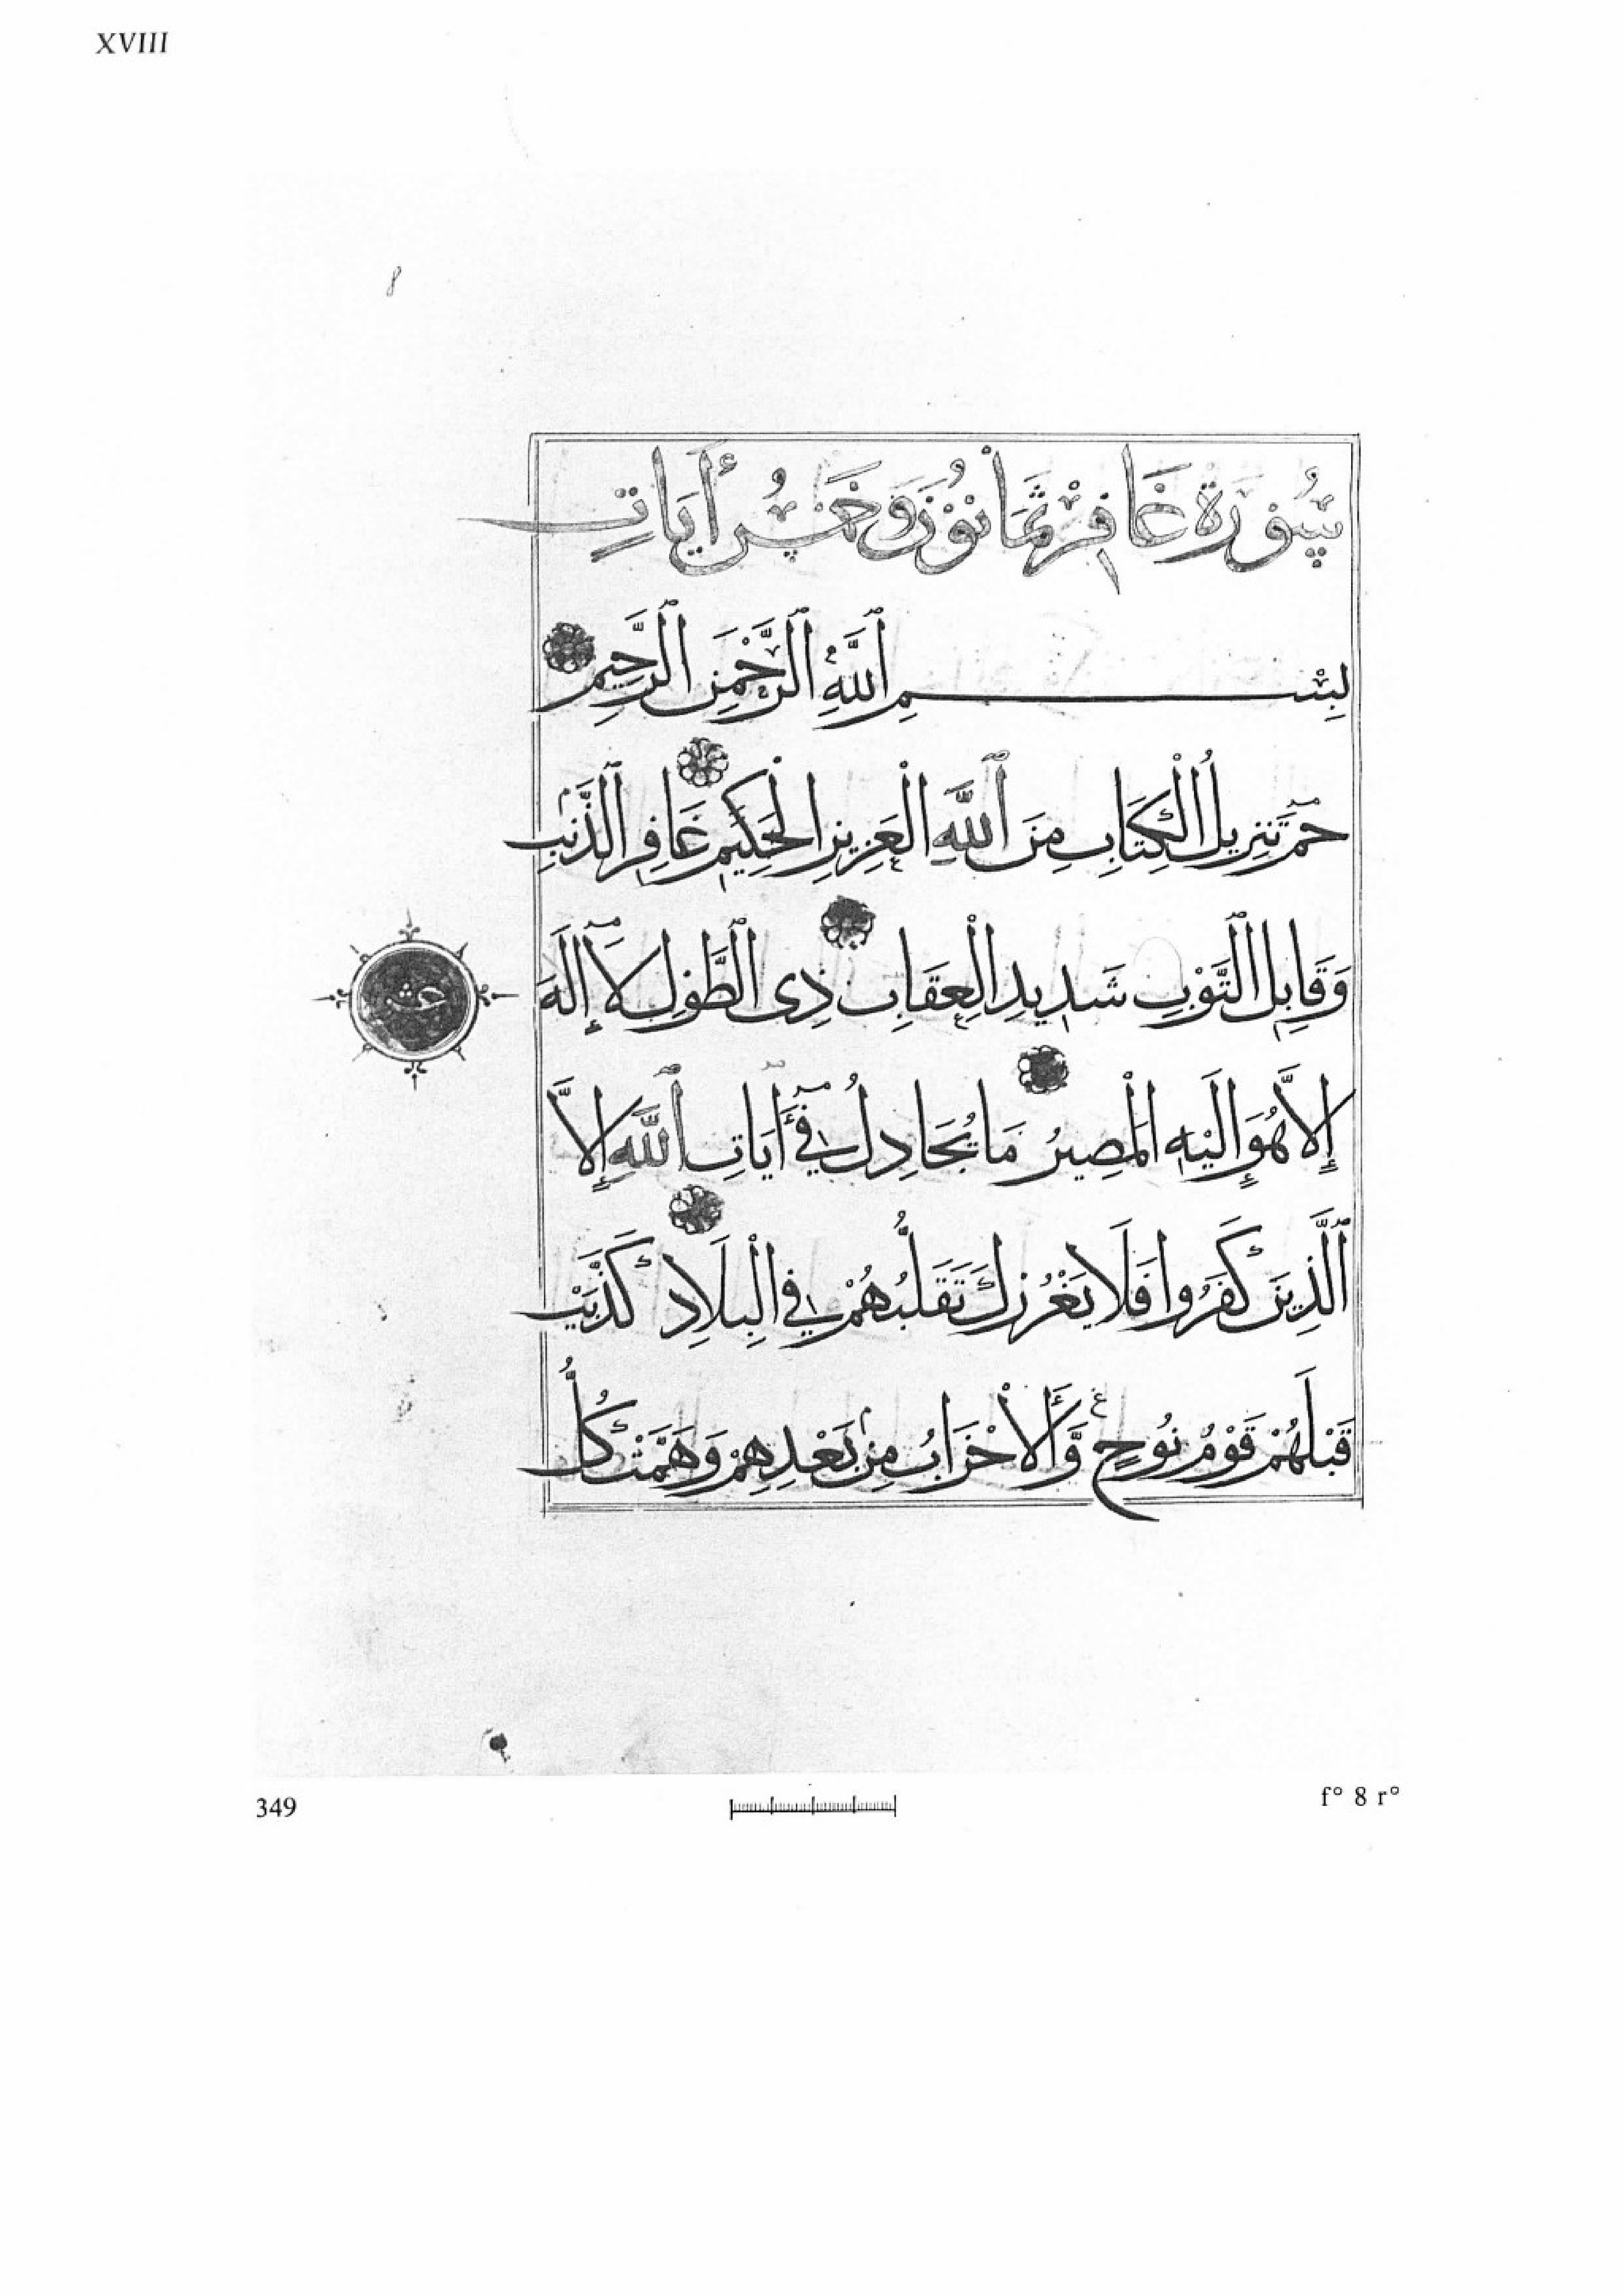 XVIII
8
سُورَةُ غَافِرْ ثَمَانُونَ وَخَمْسُ أٰيَاتٍ
بِسْمِ ٱللَّهِ ٱلرَّحْمٰنِ ٱلرَّحِيمِ
حٰمٓ تَنزِيلُ الْكِتَابِ مِنَ ٱللَّهِ الْعَزِيزِ الْحَكِيمِ غَافِرِ ٱلذَّنبِ
وَقَابِلِ ٱلتَّوْبِ شَدِيدِ الْعِقَابِ ذِى ٱلطَّوْلِ لَآ إِلَهَ
إِلاَّ هُوَ إِلَيْهِ الْمَصِيرُ مَا يُجَادِلُ فِىٓ أَيَاتِ ٱللَّهِ إِلاَّ
ٱلَّذِينَ كَفَرُوا فَلَا يَغْرُرْكَ تَقَلُّبُهُمْ فِي الْبِلَادِ كَذَّبَتْ
قَبْلَهُمْ قَوْمُ نُوحٍ وَّالْأَحْزَابُ مِنْ بَعْدِهِمْ وَهَمَّتْ كُلُّ
349
f° 8 r°